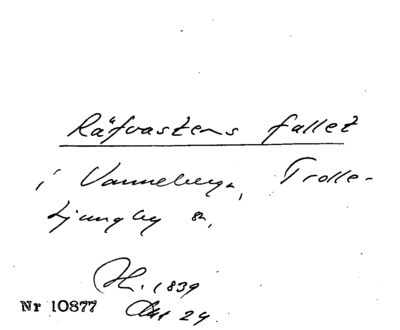 Räfvastens fallet
i Vanneberga, Trolle-
Ljungby sn,
1839
Nr 10877
24.